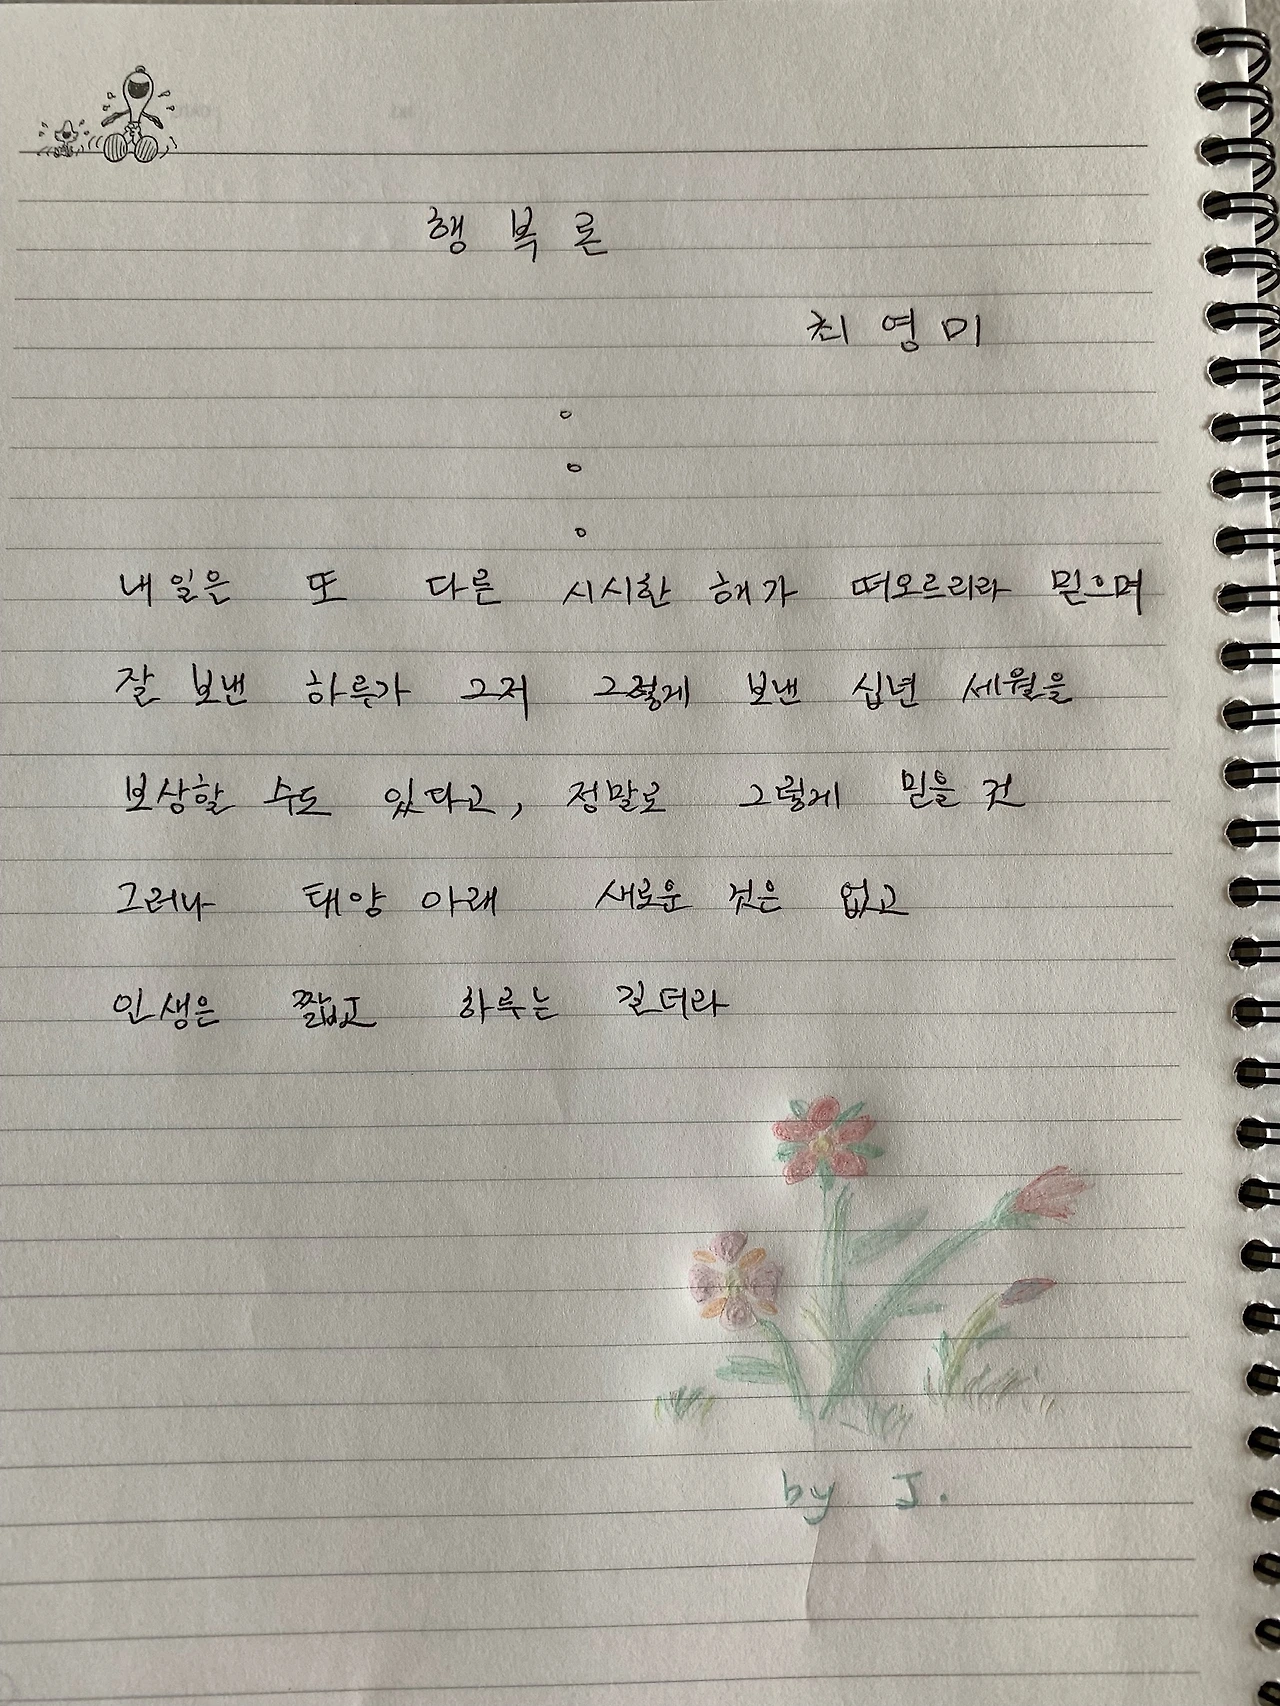 행 복 론
최 영 미
내일은 또 다른 시시한 해가 떠오르리라 믿으며
잘 보낸 하루가 그저 그렇게 보낸 십년 세월을
보상할 수도 있다고, 정말로 그렇게 믿을 것
그러나 태양 아래 새로운 것은 없고
인생은 짧고 하루는 길더라
by J.